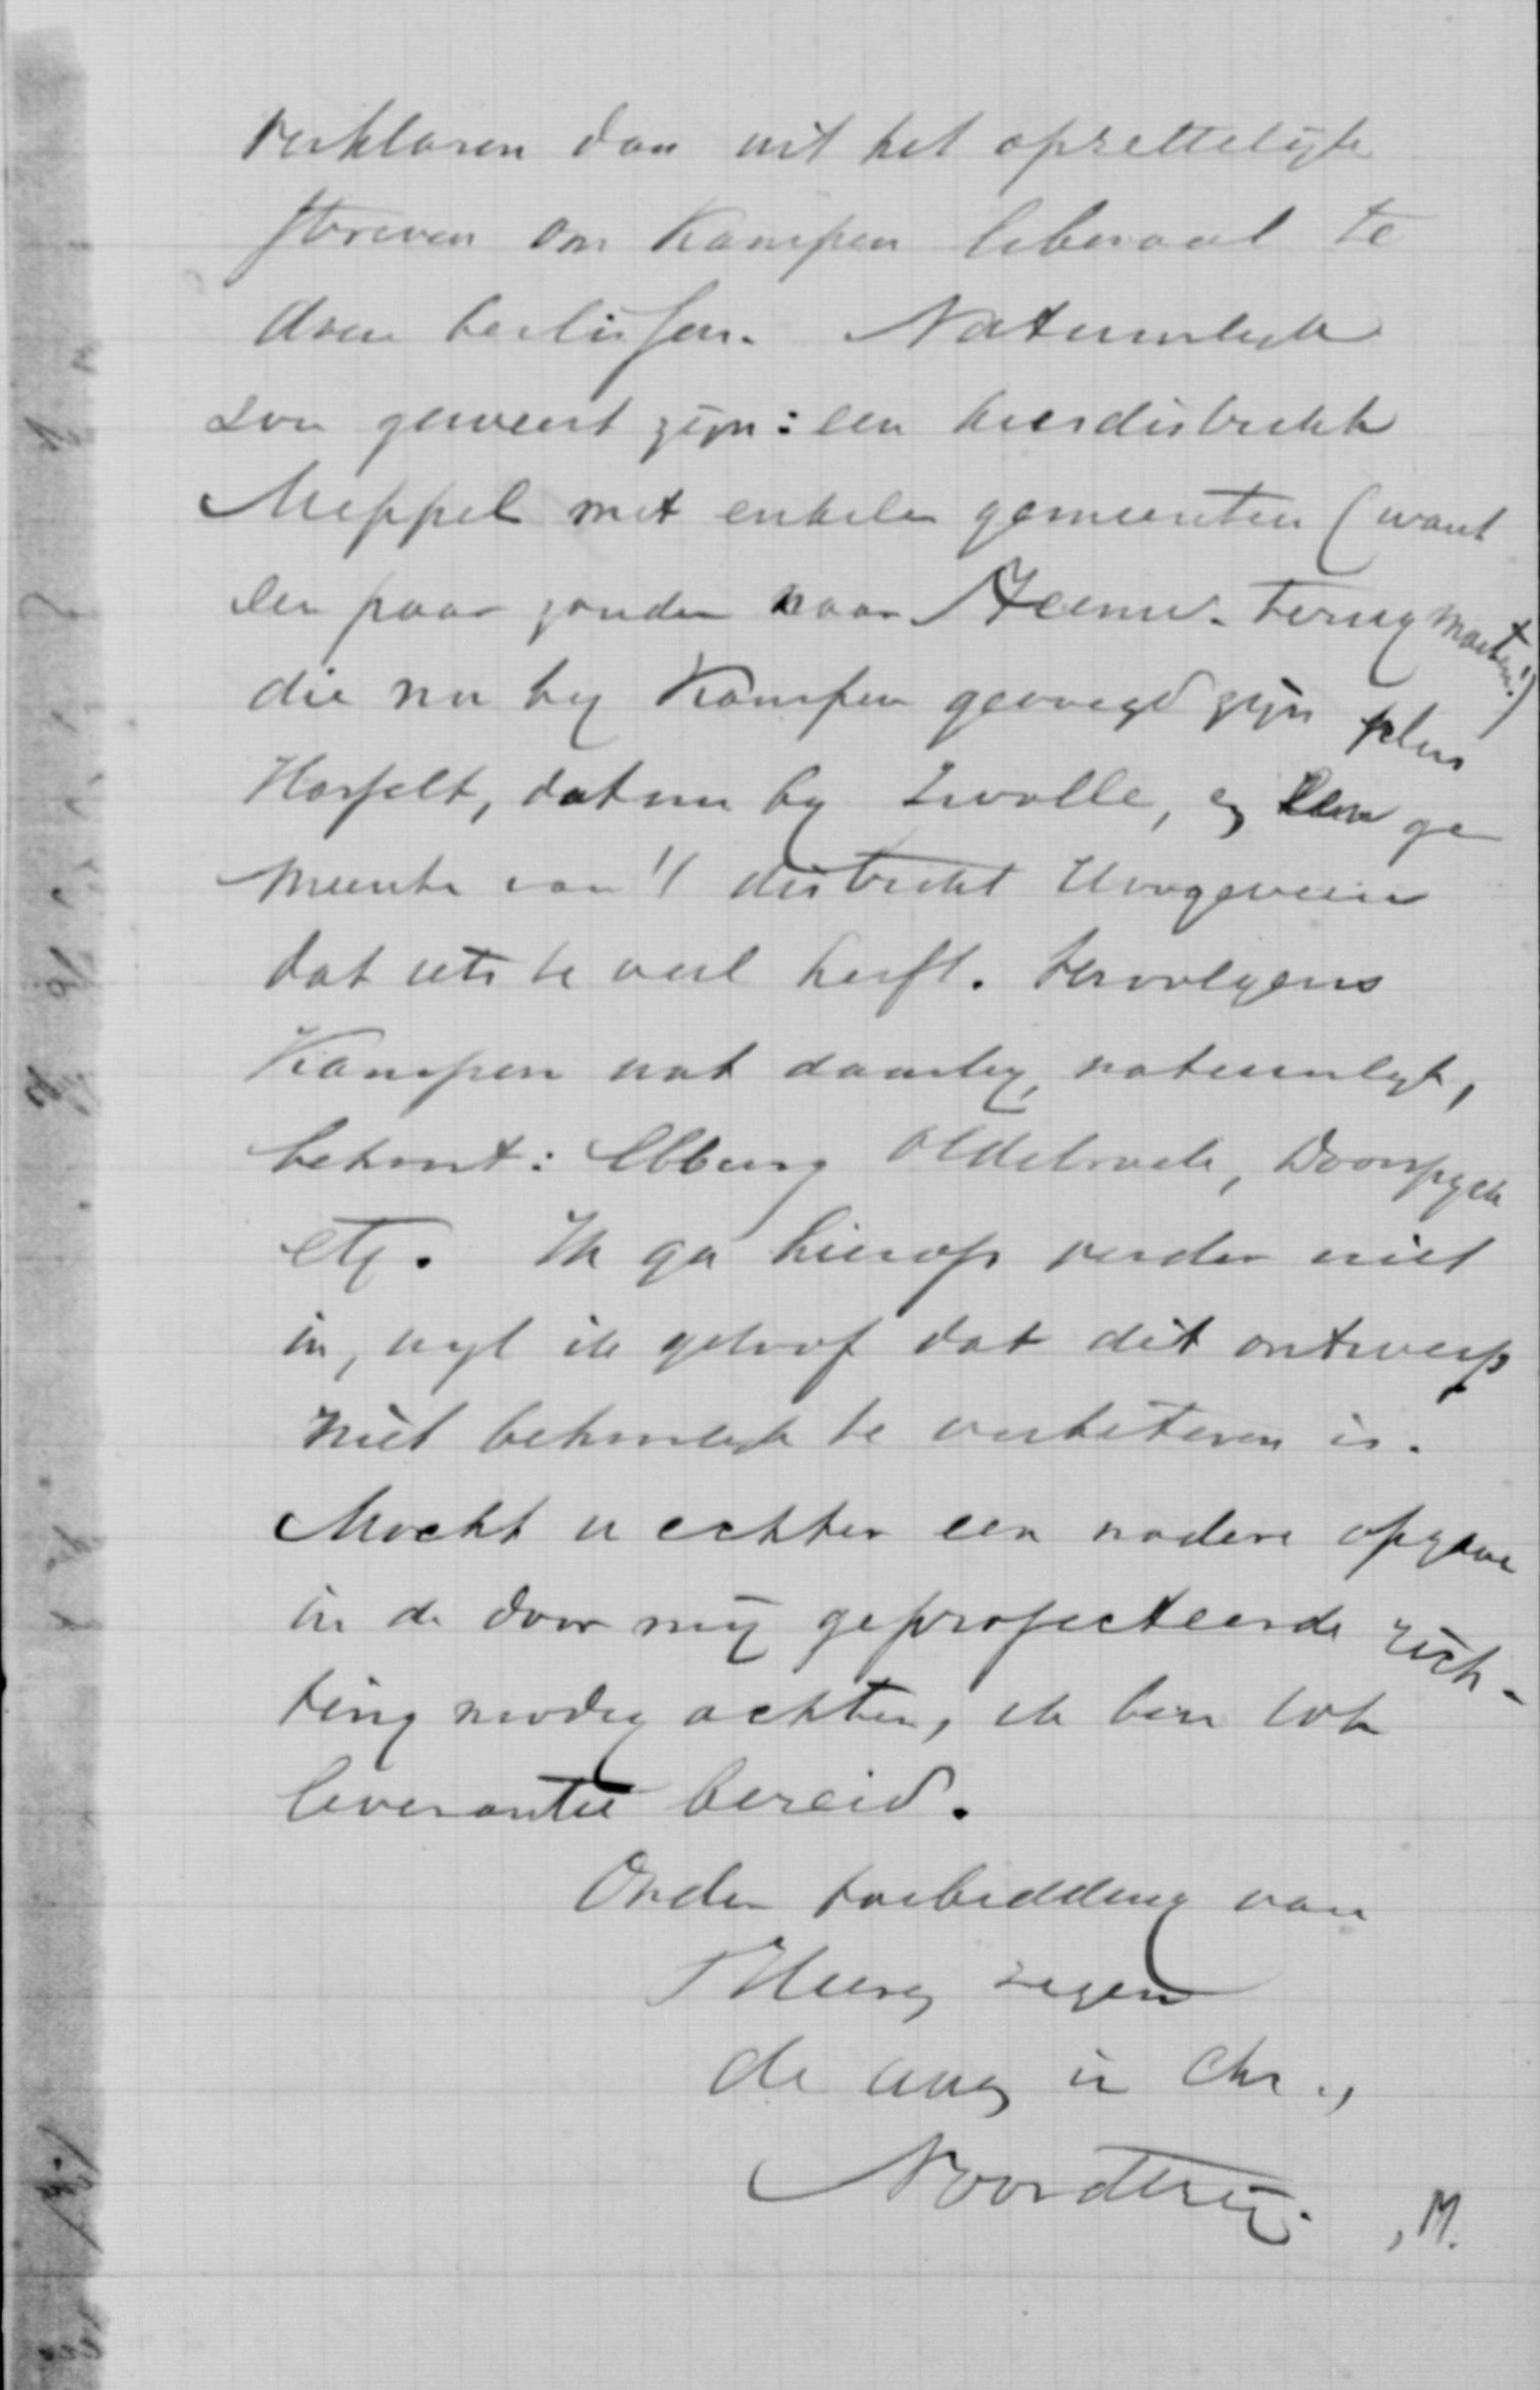 verklaren dan uit het opzettelijke
streven om Kampen liberaal te
doen beslissen. Natuurlijk
zou geweest zijn: een kiesdistrikt
Meppel met enkele gemeenten (want
een paar zouden naar Steenw. terug moeten!)
die nu by Kampen gevoegd zijn plus
Hasselt, dat nu by Zwolle, en een ge
meente van 't district Hoogeveen
dat iets te veel heeft. Vervolgens
Kampen wat daarby, natuurlyk,
behoort: Elburg Oldebroek, Doornspyck
etc. Ik ga hierop verder niet
in, wyl ik geloof dat dit ontwerp
niet behoorlyk te verbeteren is.
Mocht u echter een nadere opgave
in de door mij geprojecteerde rich-
ting noodig achten, ik ben tot
leverantie bereid.
Onder toebidding van
's Heeren zegen
de uwe in Chr.,
Noordtzij.
, M.